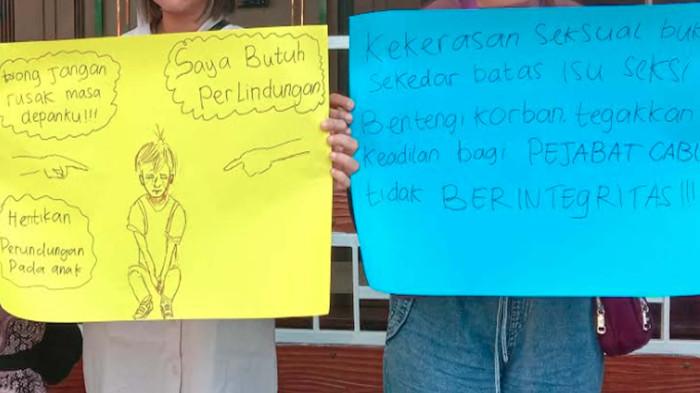 tsong Jangan
rusak masa
depanku!!!
Saya Butuh
PerLindungan
Hentikan
Perundungan
Pada anak
Kekerasan Seksual buk
sekedar batas ISU SEKSI
Bentengi korban. tegakkan
Keadilan bagi PEJABAT CABU
tidak BERINTEGRITAS!!!